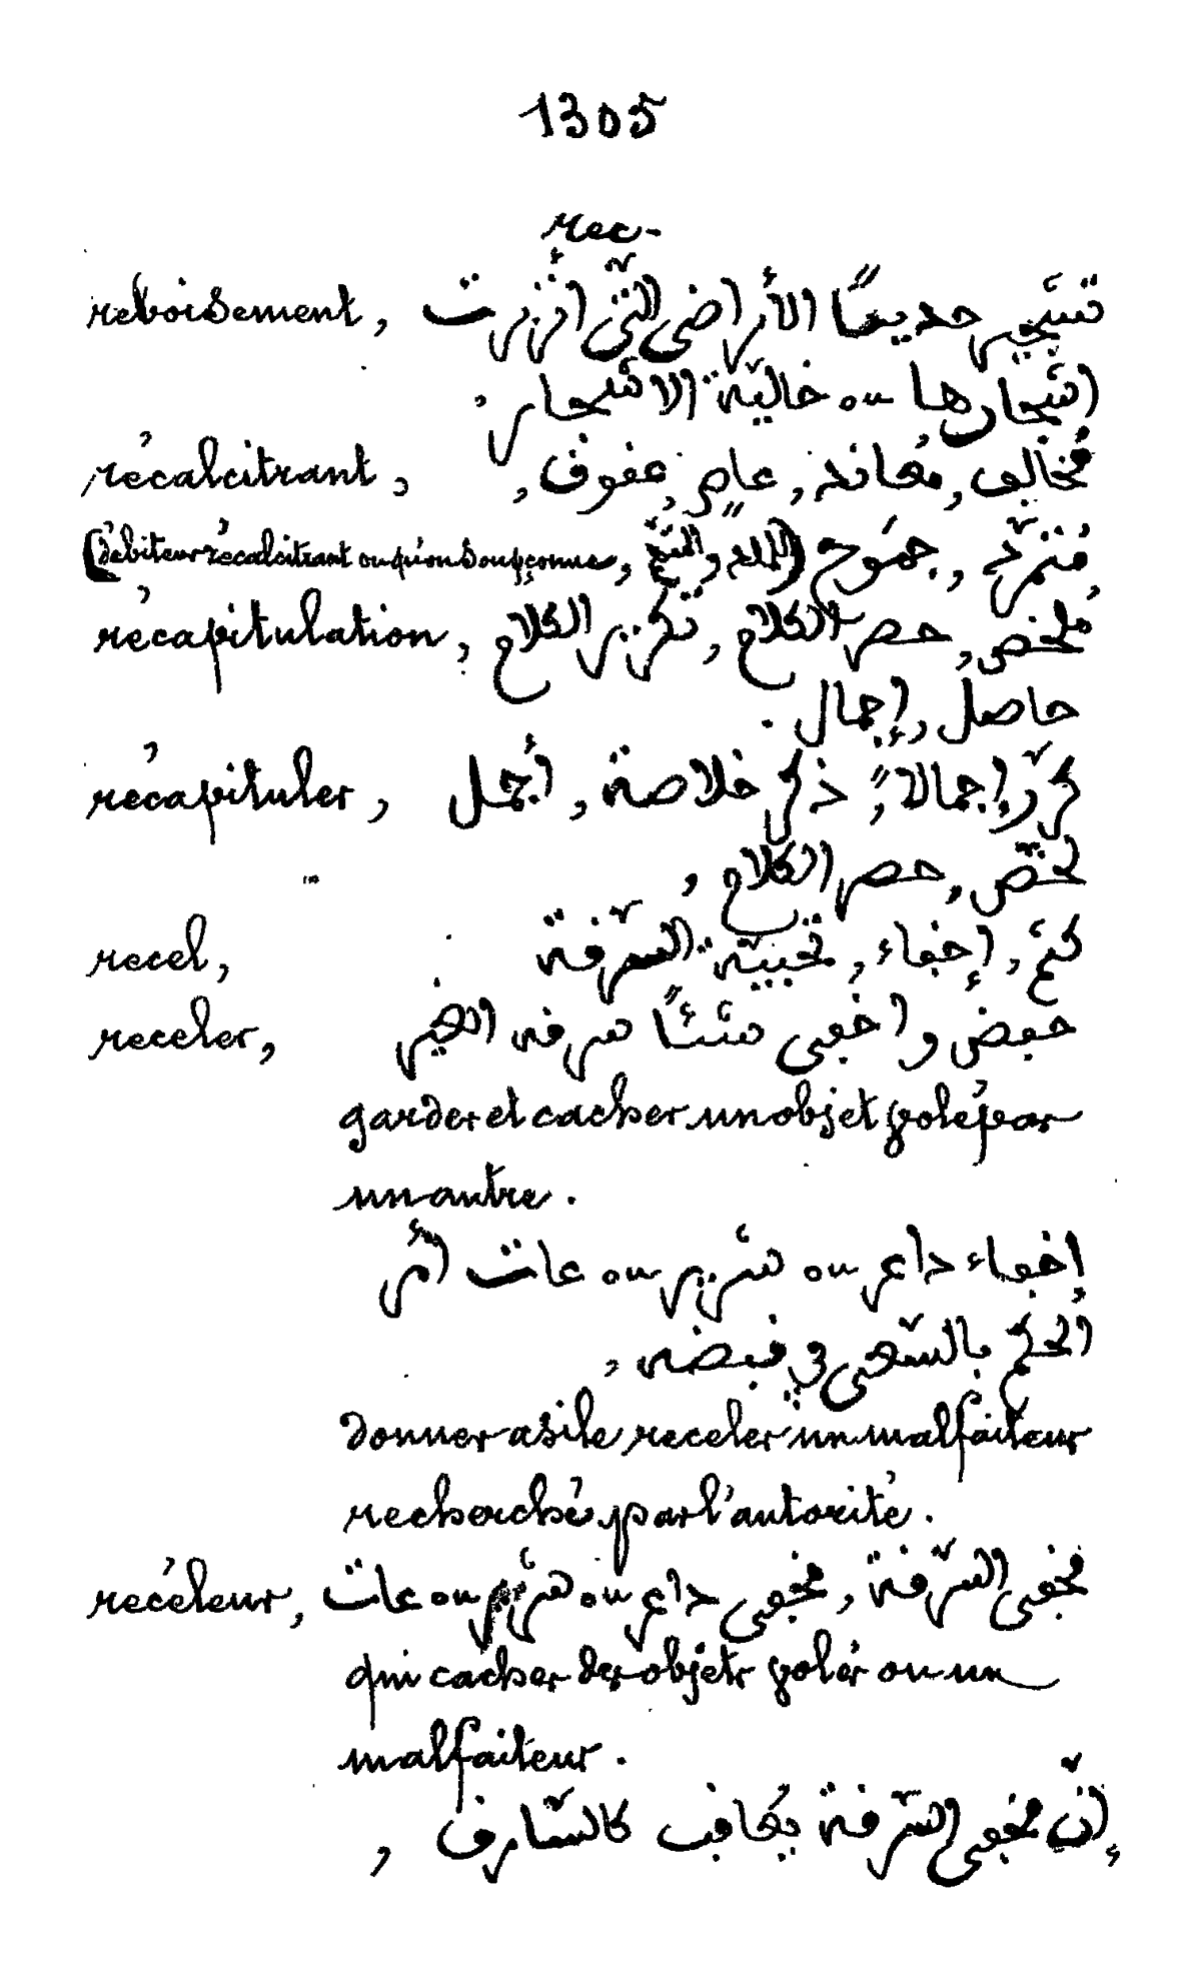 1305
rec-
reboisement, تشجير جديدًا الأراضى التّى أُنْزِرت
اشجارها ou خاليّة الاشجار,
récalcitrant, مُخالف, مُعاند, عاصٍ, عقوق,
مُتمرّد, جَموح (débiteur récalcitrant ou qu'on soupçonne,
récapitulation, مُلخص, حصر الكلام, تكرير الكلام
حاصل, إجمال.
récapituler, كرّر إجمالاً, ذكر خلاصة, أجمل
لخّص, حصر الكلام,
recel, كتم, إخفاء, تخبيّة السّرقة
receler, حفض واخفى شئًا سرقه الغير
garder et cacher un objet volé par
un autre.
إخفاء داعر ou شرير ou عات أمر
الحكم بالسّعى في قبضه,
donner asile receler un malfaiteur
recherché par l'autorité.
recéleur, مخفى السّرقة, مخفى داعر ou شرير ou عات
qui cacher des objets volés ou un
malfaiteur.
إنّ مخفى السّرقة يُعاقب كالسّارق,